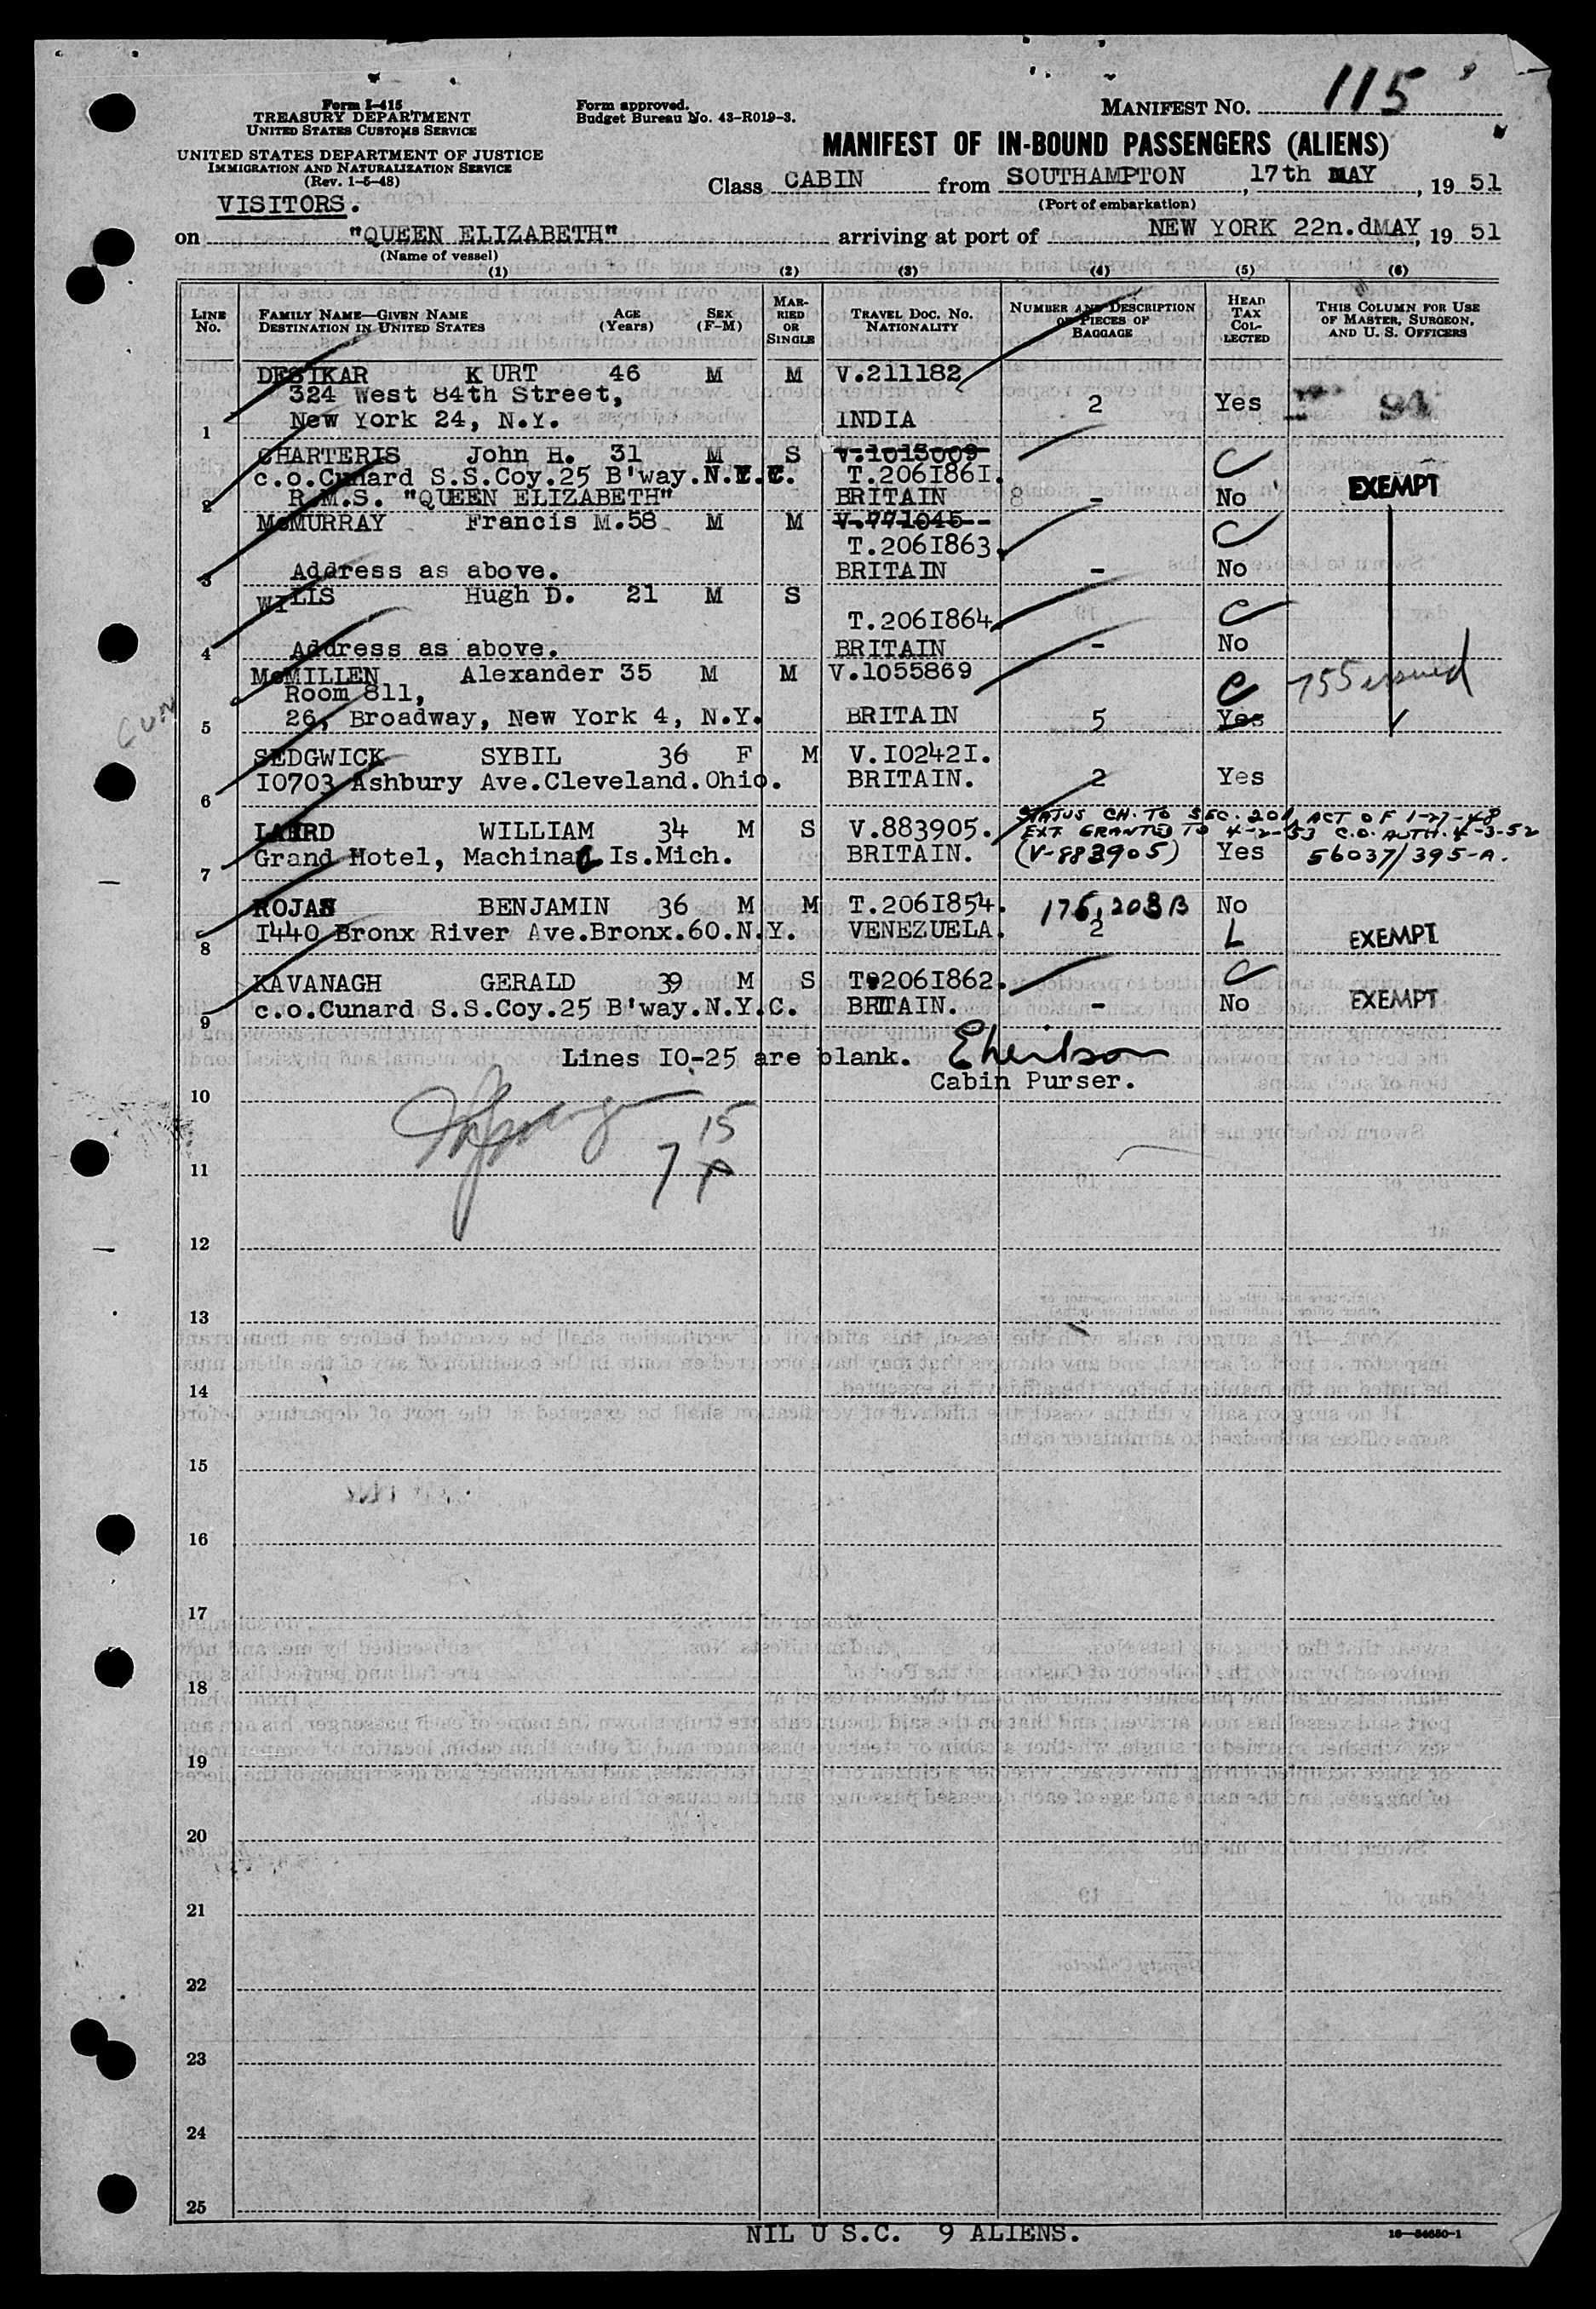 115
Form I-415
TREASURY DEPARTMENT
UNITED STATES CUSTOMS SERVICE
Form approved.
Budget Bureau No. 43-R019-3.
MANIFEST NO.
UNITED STATES DEPARTMENT OF JUSTICE
IMMIGRATION AND NATURALIZATION SERVICE
(Rev. 1-5-48)
MANIFEST OF IN-BOUND PASSENGERS (ALIENS)
VISITORS.
Class CABIN from SOUTHAMPTON, 17th MAY, 19 51
(Port of embarkation)
on "QUEEN ELIZABETH" arriving at port of NEW YORK 22n.dMAY, 19 51
(Name of vessel)
(1) (2) (3) (4) (5) (6)
LINE No.
FAMILY NAME—GIVEN NAME
DESTINATION IN UNITED STATES
AGE (Years)
SEX (F-M)
MARRIED OR SINGLE
TRAVEL DOC. NO. NATIONALITY
NUMBER AND DESCRIPTION OF PIECES OF BAGGAGE
HEAD TAX COLLECTED
THIS COLUMN FOR USE OF MASTER, SURGEON, AND U. S. OFFICERS
DESIKAR KURT 46 M M V.211182
324 West 84th Street,
1 New York 24, N.Y. INDIA 2 Yes 94
CHARTERIS John H. 31 M S V.1015009
c.o.Cunard S.S.Coy.25 B'way.N.Y.C. T.2061861. C
2 R.M.S. "QUEEN ELIZABETH" BRITAIN 8 - No EXEMPT
McMURRAY Francis M.58 M M V.771045
T.2061863. C
3 Address as above. BRITAIN - No
WILLS Hugh D. 21 M S
T.2061864. C
4 Address as above. BRITAIN - No
McMILLEN Alexander 35 M M V.1055869
Room 811, C 755 issued
5 26, Broadway, New York 4, N.Y. BRITAIN 5 Yes
SEDGWICK SYBIL 36 F M V.102421.
6 10703 Ashbury Ave.Cleveland.Ohio. BRITAIN. 2 Yes
STATUS CH. TO SEC. 201, ACT OF 1-27-48
LAIRD WILLIAM 34 M S V.883905. EXT. GRANTED TO 4-2-53 C.O. AUTH. 4-3-52
7 Grand Hotel, Machinac Is.Mich. BRITAIN. (V-883905) Yes 56037/395-A.
ROJAS BENJAMIN 36 M M T.2061854. 175,203B No
8 1440 Bronx River Ave.Bronx.60.N.Y. VENEZUELA. 2 L EXEMPT
KAVANAGH GERALD 39 M S T.2061862. C
9 c.o.Cunard S.S.Coy.25 B'way.N.Y.C. BRITAIN. - No EXEMPT
Lines 10-25 are blank.
Cabin Purser.
10
15
7
11
12
13
14
15
16
17
18
19
20
21
22
23
24
25
NIL U S.C. 9 ALIENS.
16—54650-1